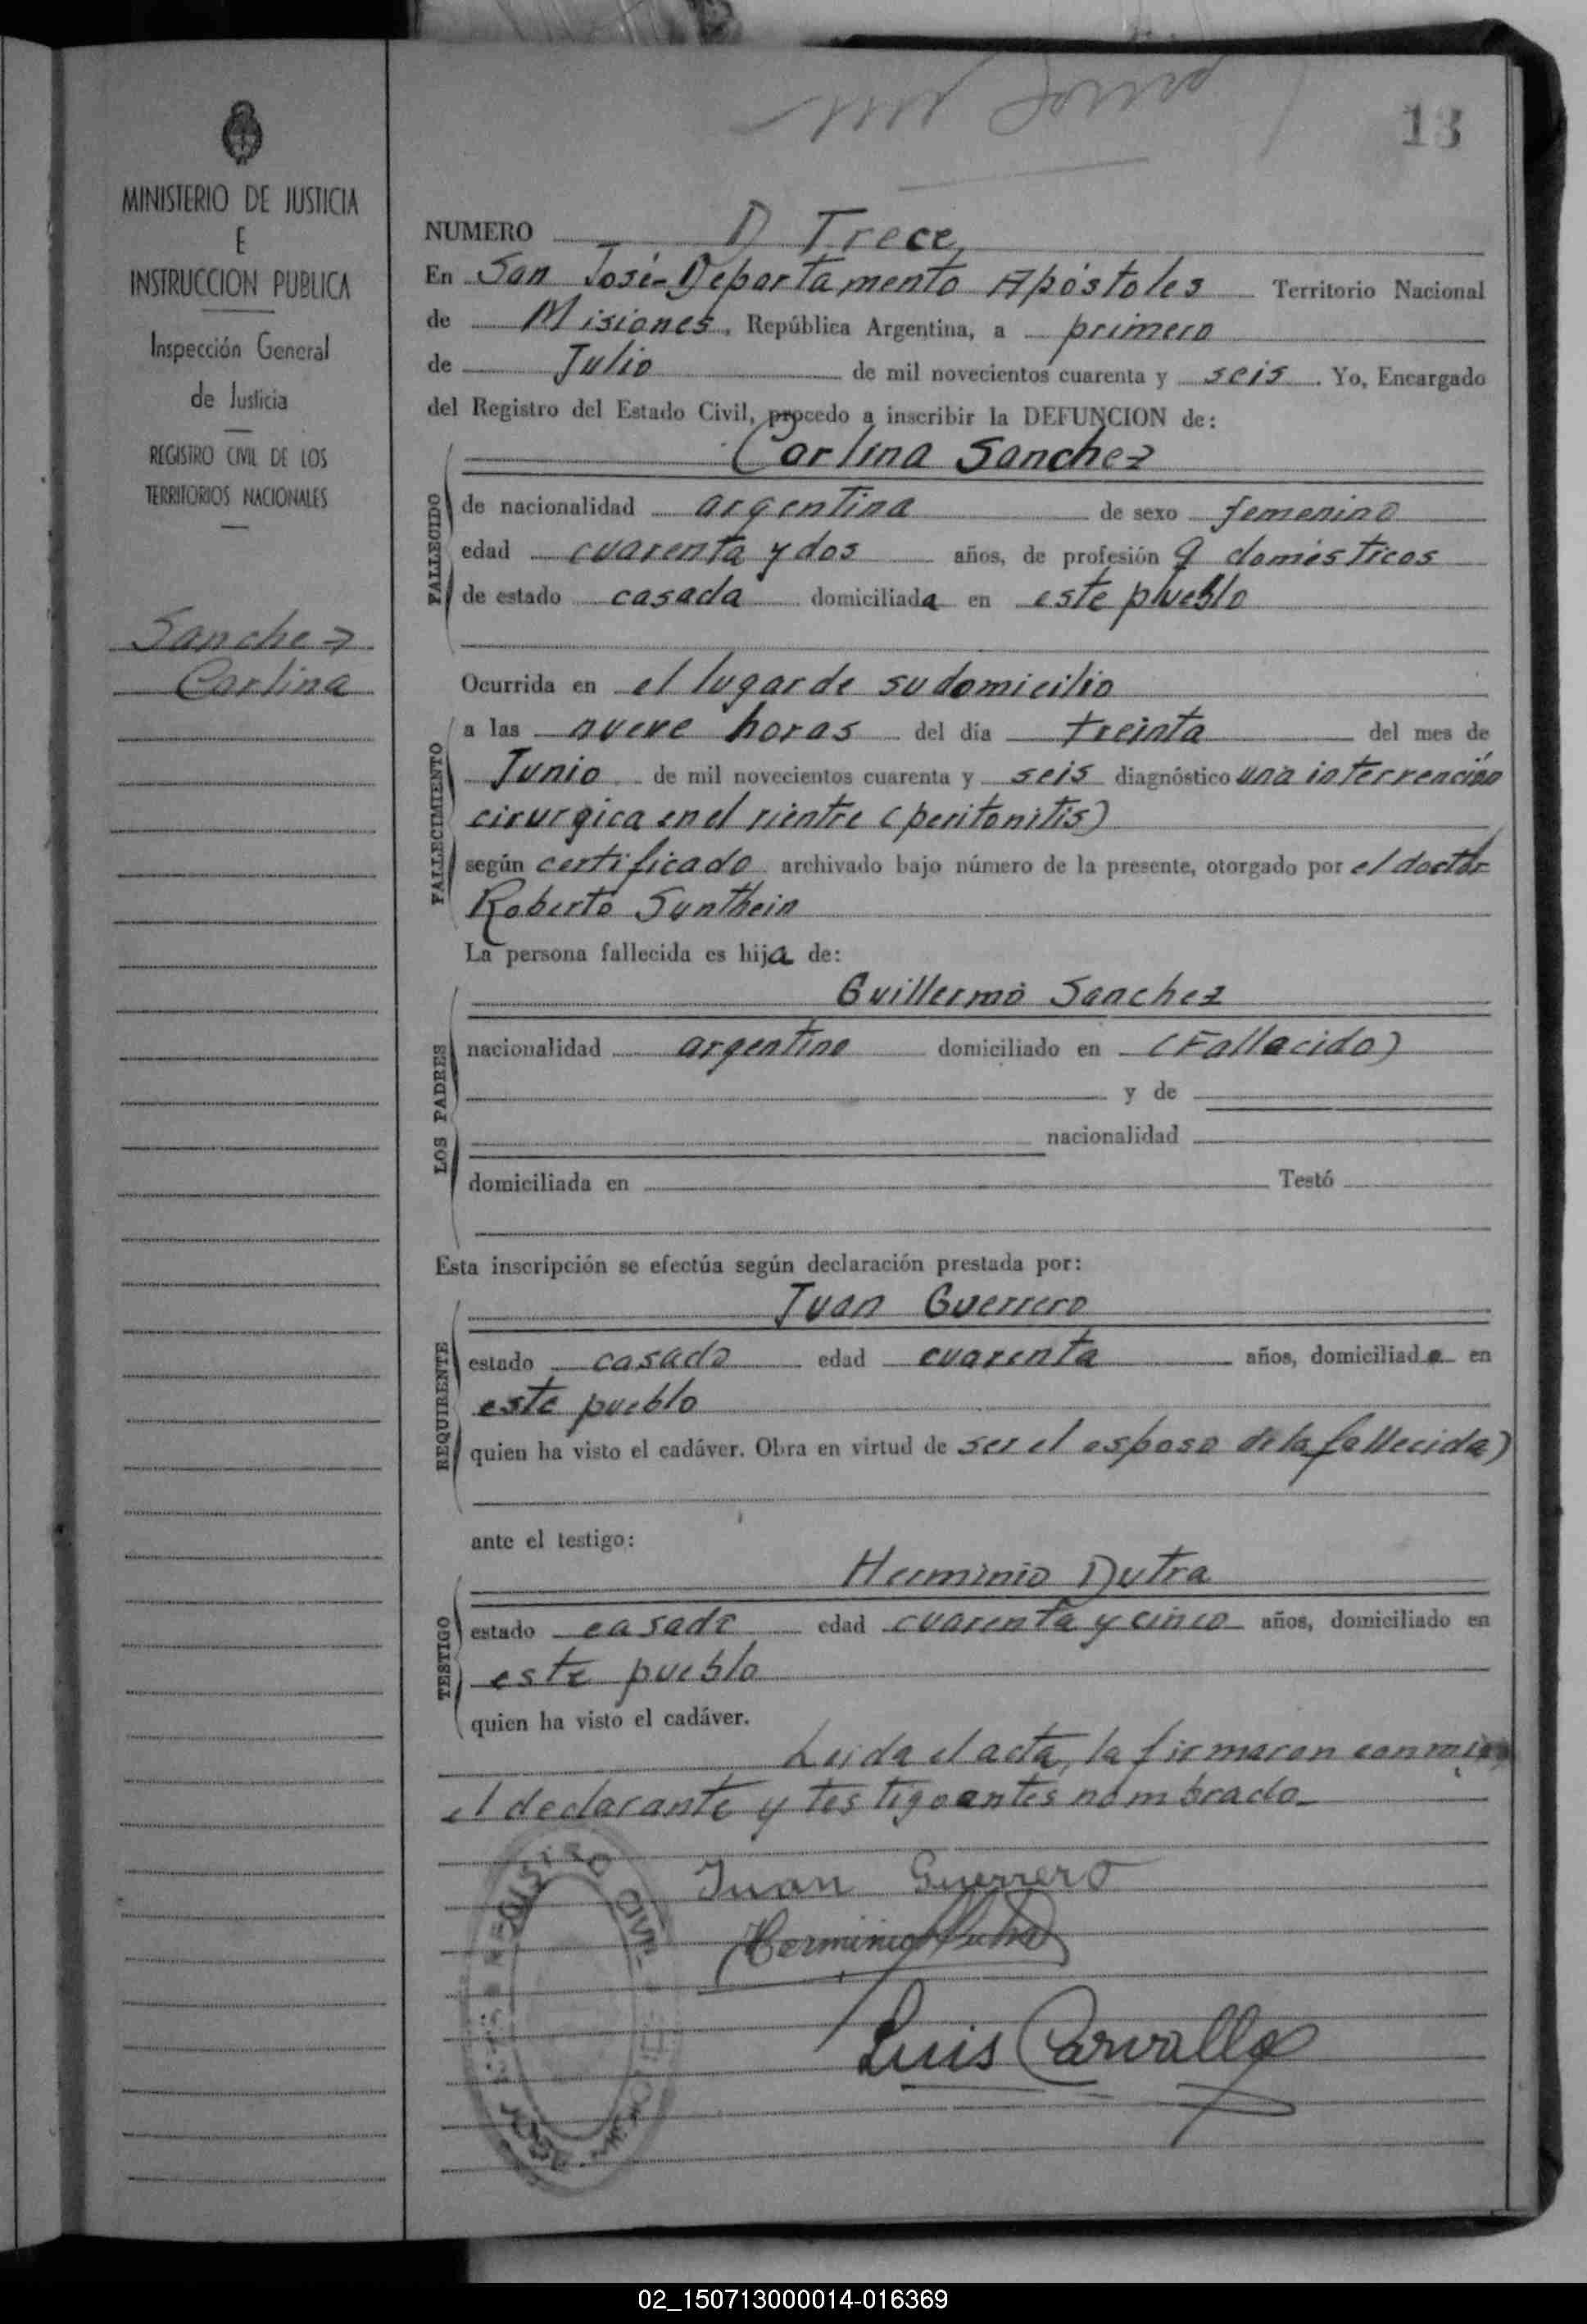 13
MINISTERIO DE JUSTICIA
E
INSTRUCCION PUBLICA
Inspección General
de Justicia
REGISTRO CIVIL DE LOS
TERRITORIOS NACIONALES
Sanchez
Carlina
NUMERO D Trece
En San José-Departamento Apóstoles Territorio Nacional
de Misiones, República Argentina, a primero
de Julio de mil novecientos cuarenta y seis. Yo, Encargado
del Registro del Estado Civil, procedo a inscribir la DEFUNCION de:
Carlina Sanchez
FALLECIDO
de nacionalidad argentina de sexo femenino
edad cuarenta y dos años, de profesión q domésticos
de estado casada domiciliada en este pueblo
Ocurrida en el lugar de su domicilio
FALLECIMIENTO
a las nueve horas del día treinta del mes de
Junio de mil novecientos cuarenta y seis diagnóstico una intervención
cirurgica en el vientre (peritonitis)
según certificado archivado bajo número de la presente, otorgado por el doctor
Roberto Sunthein
La persona fallecida es hija de:
LOS PADRES
Guillermo Sanchez
nacionalidad argentino domiciliado en (Fallacido)
y de
nacionalidad
domiciliada en Testó
Esta inscripción se efectúa según declaración prestada por:
REQUIRENTE
Juan Guerrero
estado casado edad cuarenta años, domiciliado en
este pueblo
quien ha visto el cadáver. Obra en virtud de ser el esposo de la fallecida)
ante el testigo:
TESTIGO
Herminio Dutra
estado casado edad cuarenta y cinco años, domiciliado en
este pueblo
quien ha visto el cadáver.
Leida el acta, la firmaron conmigo
el declarante y testigo antes nombrado
REGISTRO CIVIL
Juan Guerrero
Herminio Dutra
Luis Carvallo
02_150713000014-016369